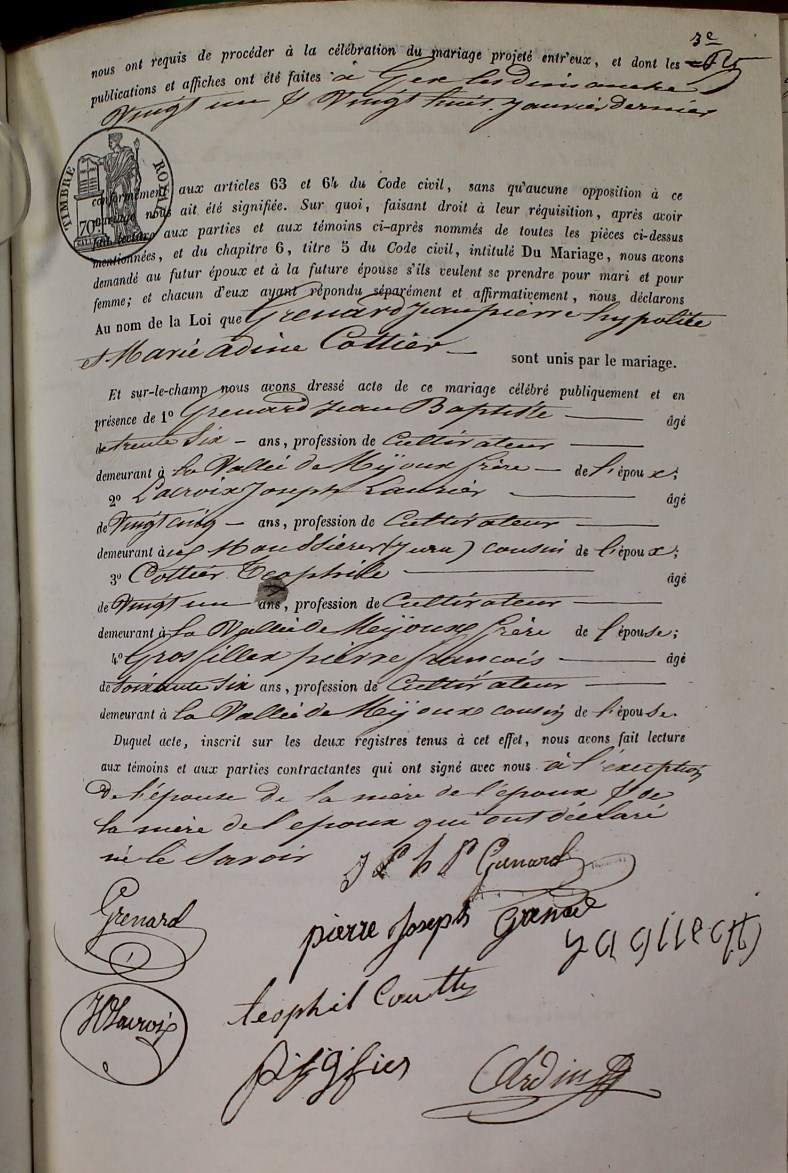 3e
nous ont requis de procéder à la célébration du mariage projeté entr'eux, et dont les
publications et affiches ont été faites à Gex les dimanche
Vingt un & Vingt huit Janvier dernier
TIMBRE ROYAL
70
conformément aux articles 63 et 64 du Code civil, sans qu'aucune opposition à ce
mariage nous ait été signifiée. Sur quoi, faisant droit à leur réquisition, après avoir
fait lecture aux parties et aux témoins ci-après nommés de toutes les pièces ci-dessus
mentionnées, et du chapitre 6, titre 5 du Code civil, intitulé Du Mariage, nous avons
demandé au futur époux et à la future épouse s'ils veulent se prendre pour mari et pour
femme; et chacun d'eux ayant répondu séparément et affirmativement, nous déclarons
Au nom de la Loi que Grenard Jean pierre hypolite
& Marie adine Cottier
sont unis par le mariage.
Et sur-le-champ nous avons dressé acte de ce mariage célébré publiquement et en
présence de 1o Grenard Jean Baptiste âgé
de trente Six ans, profession de Cultivateur
demeurant à la Vallée de Mijoux frère de l'époux;
2o Lacroix Joseph âgé
de Vingt cinq ans, profession de Cultivateur
demeurant à (Jura) cousin de l'époux;
3o Cottier Teophile âgé
de Vingt un ans, profession de Cultivateur
demeurant à la Vallée de Mijoux frère de l'épouse;
4o Grosfillex pierre francois âgé
de soixante Six ans, profession de Cultivateur
demeurant à la Vallée de Mijoux cousin de l'épouse.
Duquel acte, inscrit sur les deux registres tenus à cet effet, nous avons fait lecture
aux témoins et aux parties contractantes qui ont signé avec nous à l'exception
De l'épouse de la mère de l'epoux & de
la mère de l'epoux qui ont déclaré
ne le Savoir
J P h P Grenard
Grenard
pierre Joseph Grenard
JLacroix
teophil